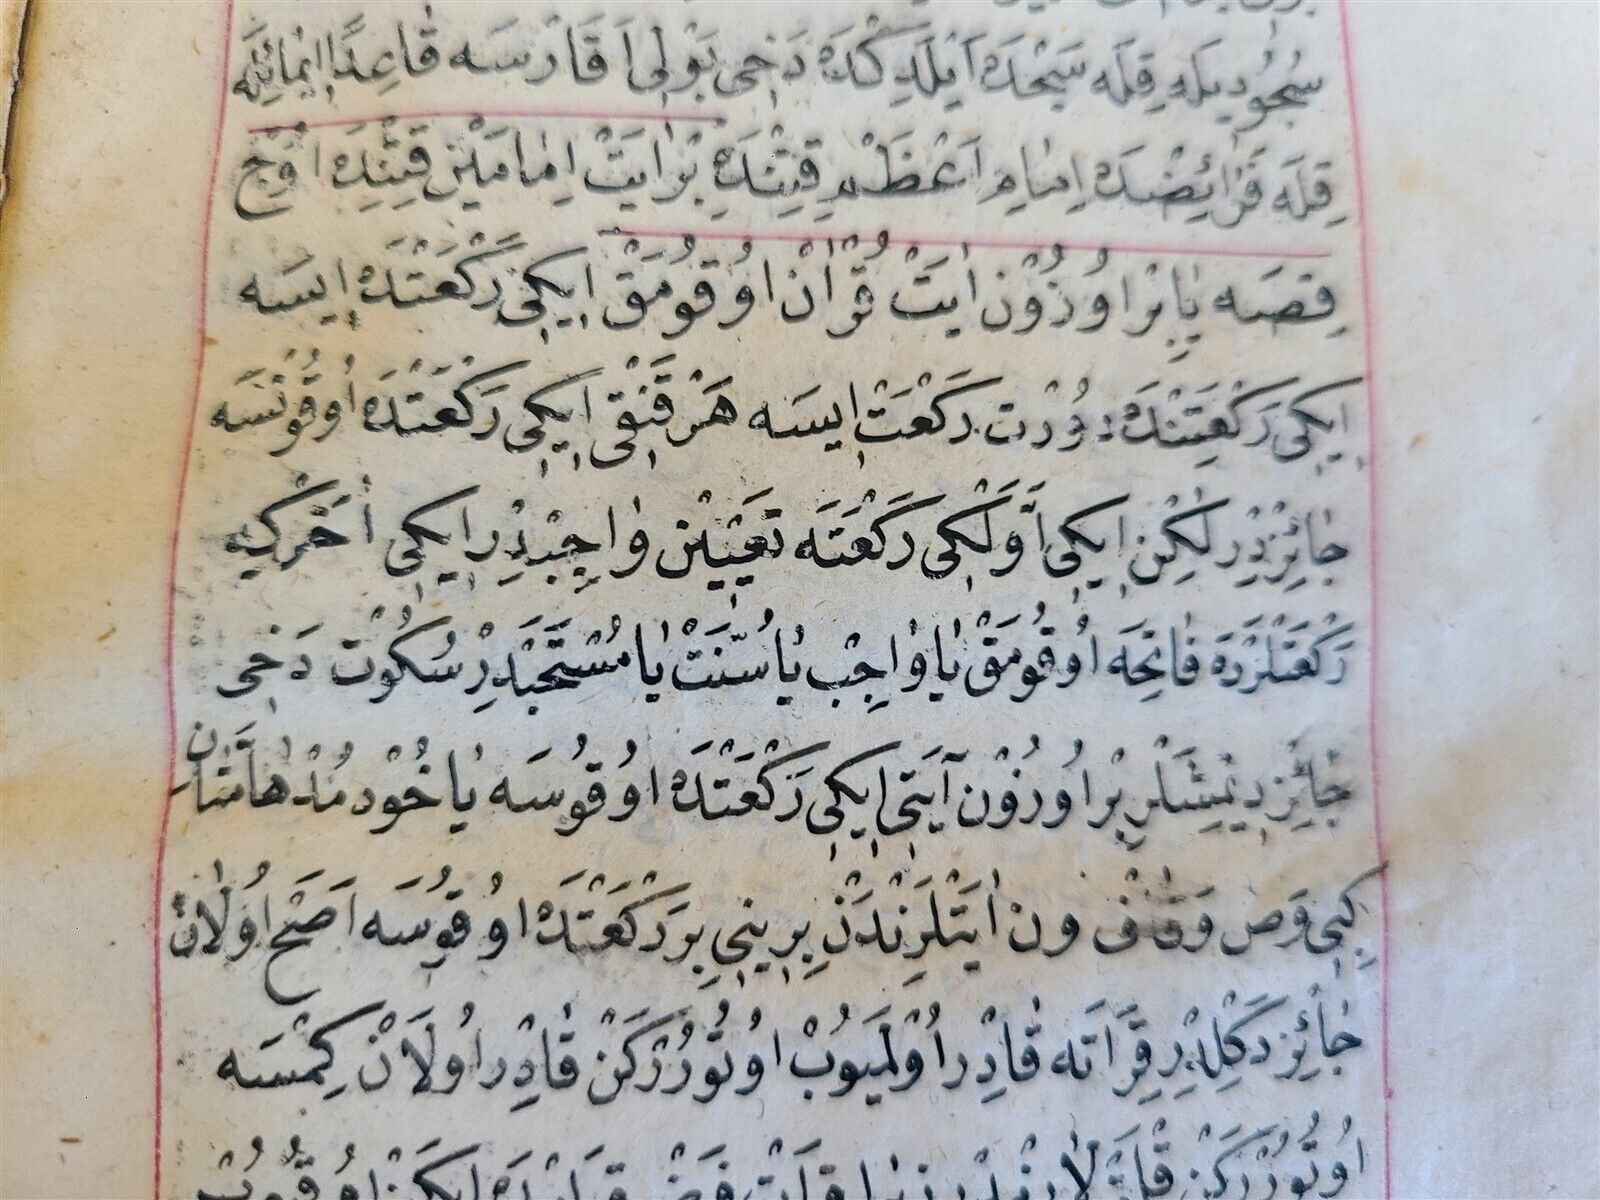 سُجُودیلَه قِلَه سَجْدَه اَیْلَدِكْدَه دَخِی بَوْلِی اَقَارْسَه قَاعِدًا اِیْمَائِیلَه
قِلَه قَرَائِضْدَه اِمَامِ اَعْظَمْ قِتِنْدَه بْرْ اٰیَتْ اِمَامَیْنْ قِتِنْدَه اُوْچْ
قِصَه یَا بِرْ اُوزُوْنْ اٰیَتْ قُرْاٰنْ اُوقُومَقْ اِیكِی رَكْعَتْدَه اِیسَه
اِیكِی رَكْعَتِنْدَه دُرْت رَكْعَتْ اِیسَه هَرْ قَنْقِی اِیكِی رَكْعَتْدَه اُوقُونْسَه
جَائِزْدِرْ لٰكِنْ اِیكِی اَوَّلْكِی رَكْعَتَه تَعْیِیْنْ وَاجِبْدِرْ اِیكِی اٰخَرْكِیه
رَكْعَتْلَرْدَه فَاتِحَه اُوقُومَقْ یَا وَاجِبْ یَا سُنَّتْ یَا مُسْتَحَبْدِرْ سُكُوتْ دَخِی
جَائِزْ دِیْمِشْلَرْ بِرْ اُوزُوْنْ آیَتِی اِیكِی رَكْعَتْدَه اُوقُوسَه یَاخُوْد مُدْهَآمَّتَانِ
كِبِی وَص وَق وَن اٰیَتْلَرِنْدَنْ بِرِینِی بِرْ رَكْعَتْدَه اُوقُوسَه اَصَحْ اُولَانْ
جَائِزْ دَكِلْدِرْ قِرَّاَتَه قَادِرْ اُوْلَمَیُوبْ اُوتُورُرْكَنْ قَادِرْ اُولَانْ كِمْسَه
اُوتُورُرْكَنْ